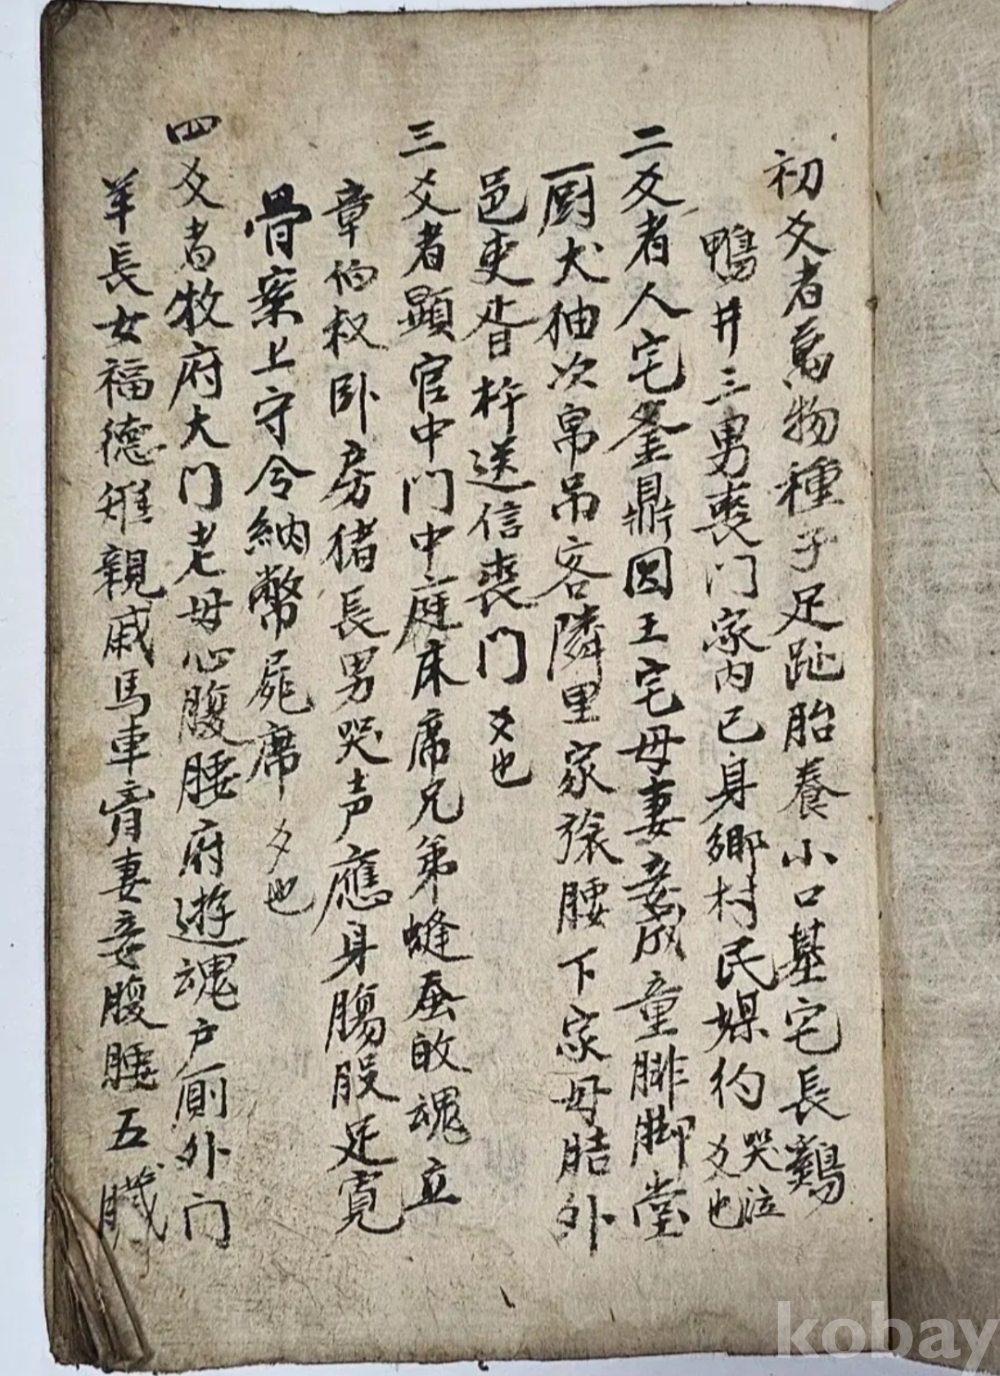 初爻者萬物種子足趾胎養小口基宅長鷄
鴨井三男喪门家內已身鄉村民媒約哭泣爻也
二爻者人宅釜鼎國王宅母妻妾成童腓脚堂
厨犬䄂次帛吊客隣里家族腰下家母 外
邑吏 杵送信喪门爻也
三爻者顯官中门中庭床席兄弟蜂蚕 魂立
章伯叔卧房猪長男哭声應身腸股足寬
骨案上守令納幣屍席爻也
四爻者牧府大门老母心腹腫府遊魂户厠外门
羊長女福德雉親戚馬車 妻妾腹腫五臟
kobay